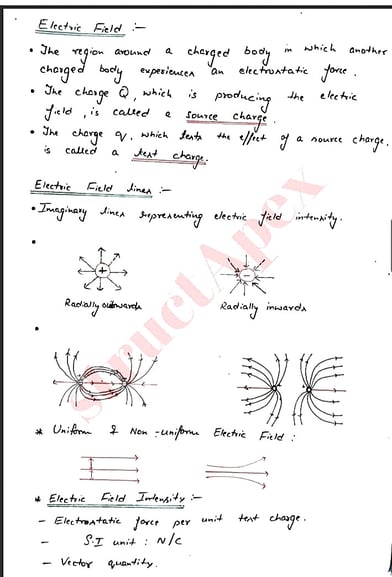 Electric Field :-
• The region around a charged body in which another
charged body experiences an electrostatic force.
• The charge Q, which is producing the electric
field, is called a source charge.
• The charge q, which tests the effect of a source charge.
is called a test charge.
Electric Field lines :-
• Imaginary lines representing electric field intensity.
•
+
-
Radially outwards
Radially inwards
•
* Uniform & Non-uniform Electric Field :
* Electric Field Intensity :-
- Electrostatic force per unit test charge.
- S.I unit : N/C
- Vector quantity.
structApex